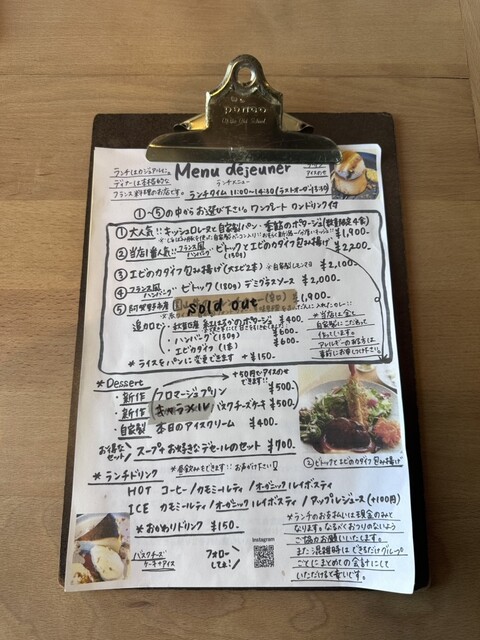 PENCO
ランチはカジュアルに。
ディナーは本格的な
フランス料理のお店です。
Menu déjeuner
ランチメニュー
ランチタイム 11:00~14:30(ラストオーダー13:30)
①~⑤の中からお選び下さい。ワンプレート ワンドリンク付
① 大人気!! キッシュロレーヌと自家製パン・季節のポタージュ(数量限定4食)
¥1,900-
② 当店1番人気!! フランス風ハンバーグ・ビトックとエビのカダイフ包み揚げ
(150g) ¥2,200-
③ エビのカダイフ包み揚げ(大エビ2本) ¥2,100-
④ フランス風ハンバーグ・ビトック(150g) デミグラスソース ¥2,000-
⑤ Sold out ¥1,900-
追加OK!・秋田県産 紅はるかのポタージュ ¥400-
・ハンバーグ(110g) ¥600-
・エビカダイフ(1本) ¥600-
* ライスをパンに変更できます +¥150-
* 当店は全て
自家製にこだわって
作っています。
アレルギーのある方は
事前にお申し下さい。
* Dessert
+50円でアイスのせ
できます!!
・新作 フロマージュプリン ¥500-
・新作 キャラメルバスクチーズケーキ ¥500-
・自家製 本日のアイスクリーム ¥400-
お得なセット! スープ+お好きなデセールのセット ¥700-
② ビトックとエビのカダイフ包み揚げ
* ランチドリンク * 昼飲みもできます!! お声がけ下さい
HOT コーヒー/カモミールティ/オーガニックルイボスティ
ICE カモミールティ/オーガニックルイボスティ/アップルジュース(+100円)
* おかわりドリンク ¥150-
バスクチーズ
ケーキ+アイス
フォロー
してね!
Instagram
* ランチのお支払いは現金のみと
なります。なるべくおつりのないよう
ご協力お願いいたします。
また混雑時はできるだけグループ
ごとにまとめてのお会計にして
いただけると幸いです。